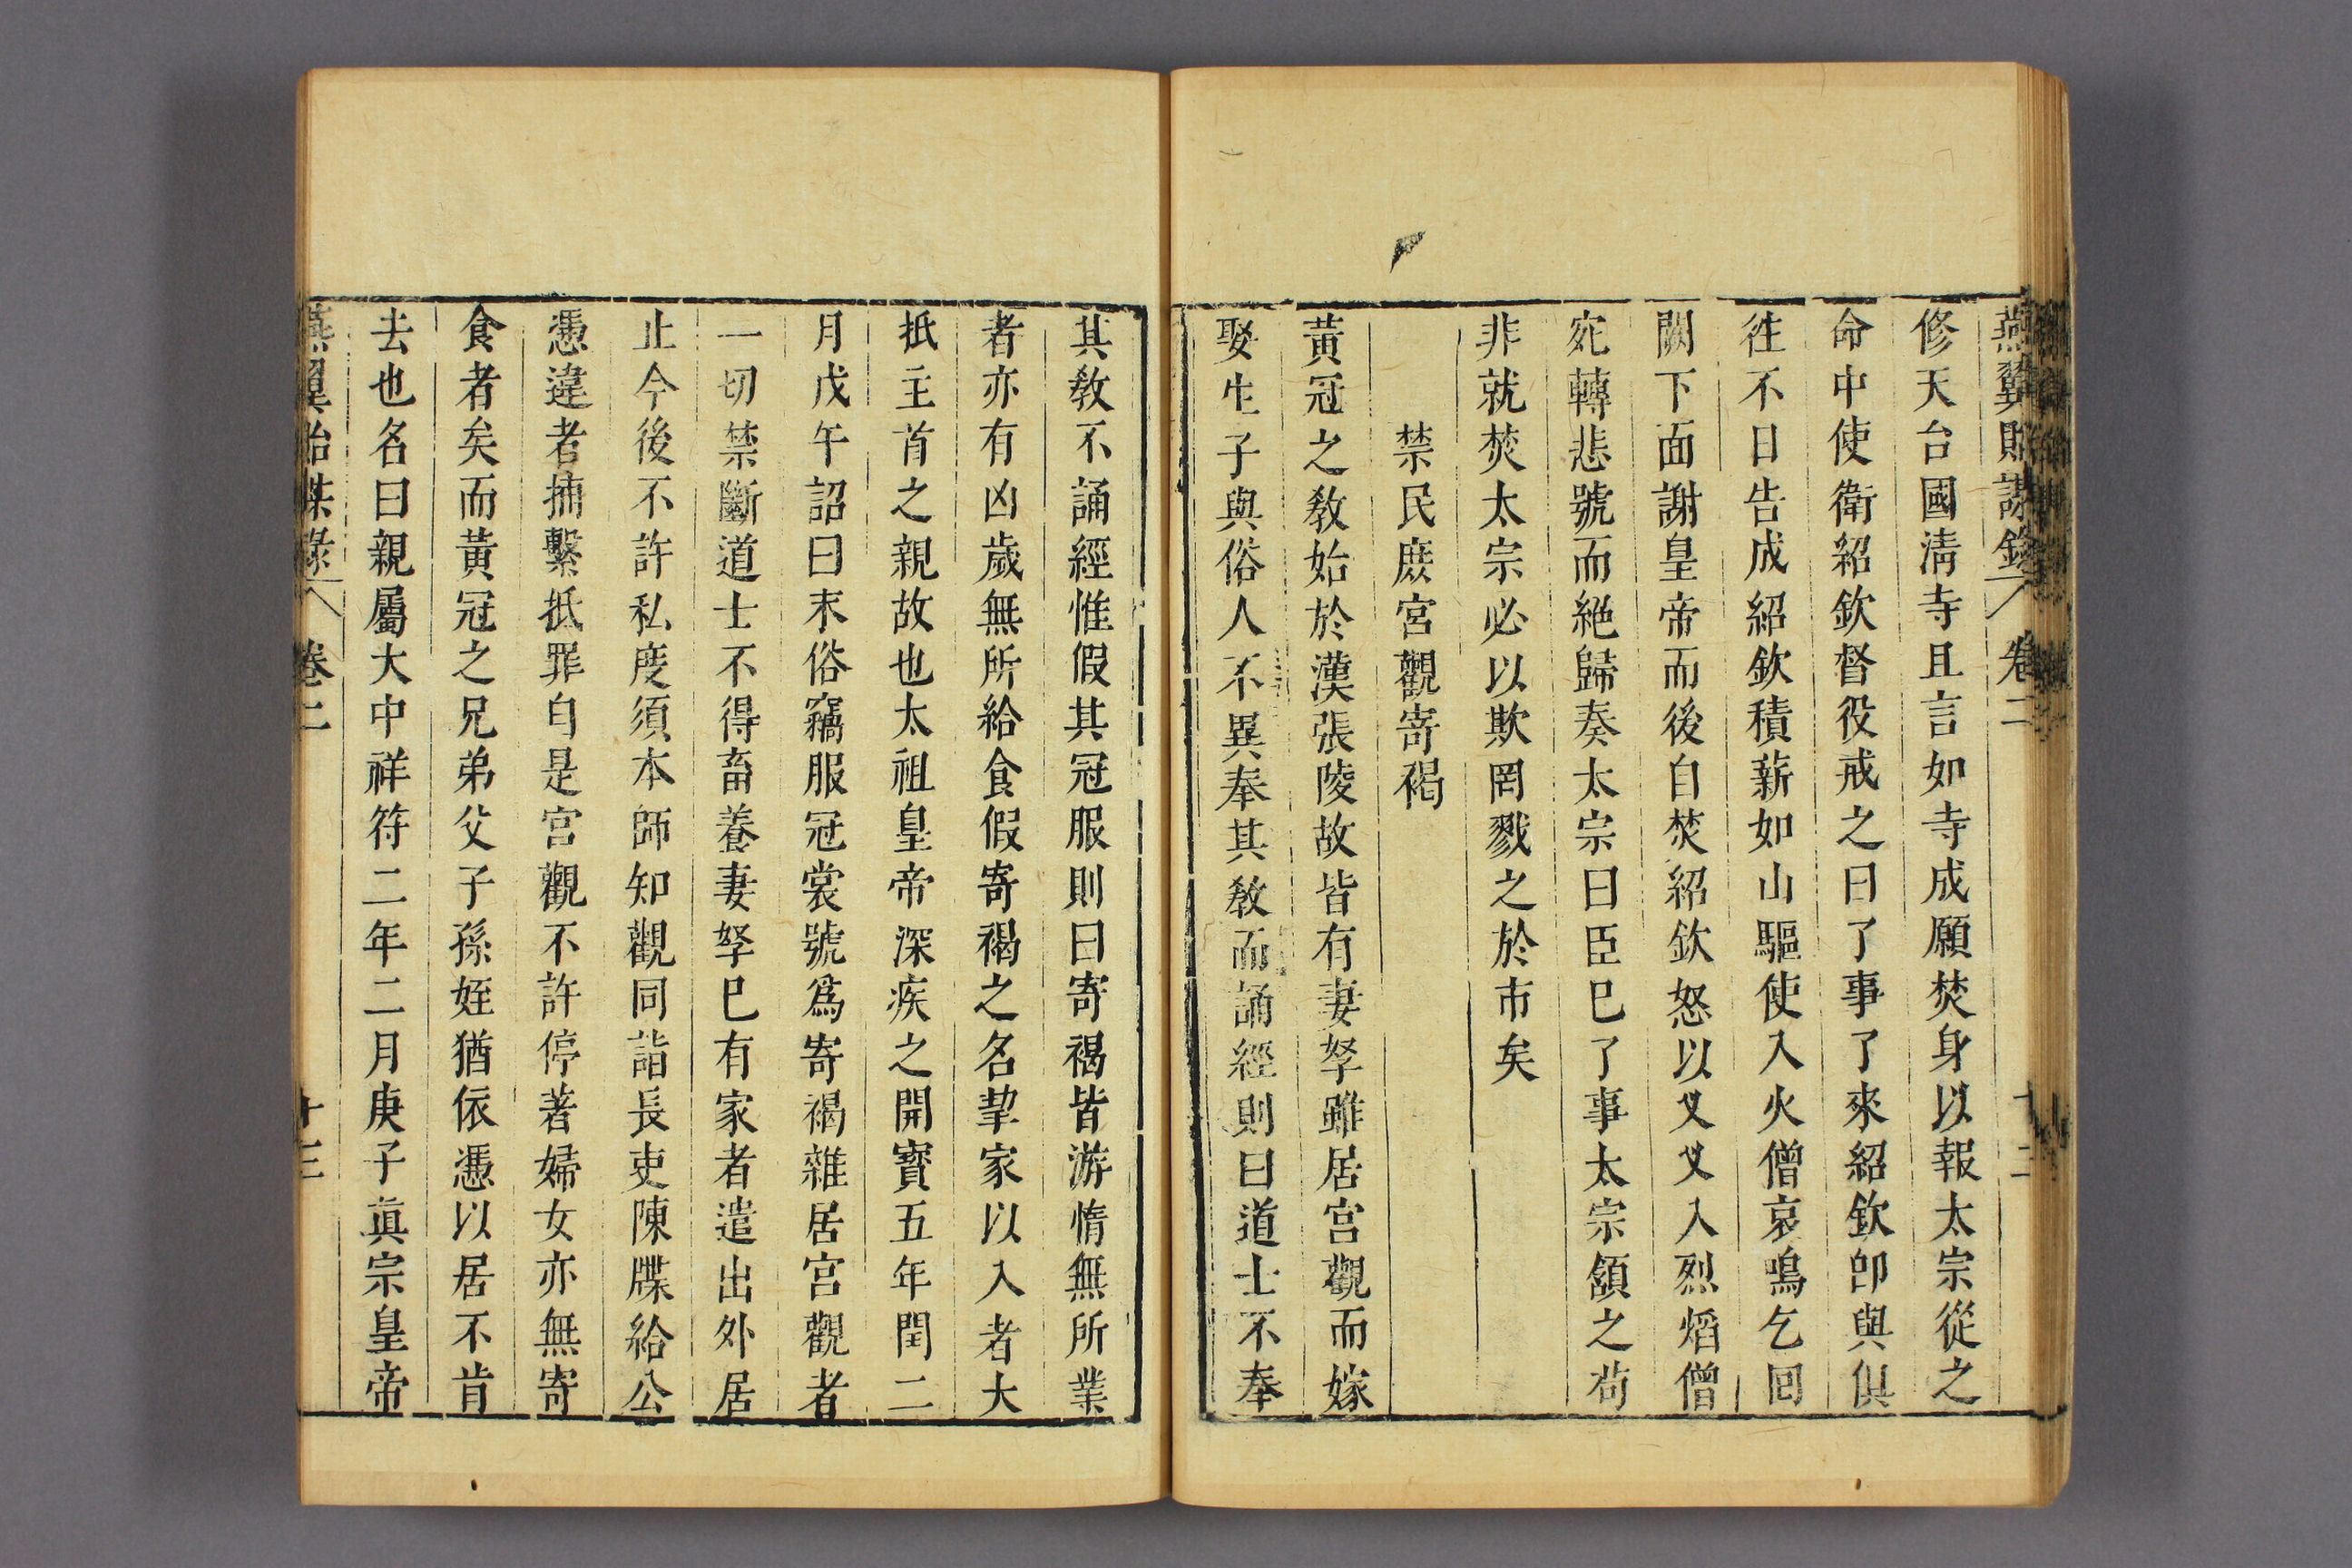 燕翼貽謀錄 卷二 十二
修天台國清寺且言如寺成願焚身以報太宗從之
命中使衛紹欽督役戒之曰了事了來紹欽卽與俱
徃不日告成紹欽積薪如山驅使入火僧哀鳴乞回
闕下面謝皇帝而後自焚紹欽怒以叉叉入烈熖僧
宛轉悲號而絕歸奏太宗曰臣巳了事太宗頷之苟
非就焚太宗必以欺罔戮之於市矣
禁民庶宮觀寄褐
黃冠之敎始於漢張陵故皆有妻孥雖居宮觀而嫁
娶生子與俗人不異奉其敎而誦經則曰道士不奉
其敎不誦經惟假其冠服則曰寄褐皆游惰無所業
者亦有凶歲無所給食假寄褐之名挈家以入者大
抵主首之親故也太祖皇帝深疾之開寶五年閏二
月戊午詔曰末俗竊服冠裳號爲寄褐雜居宮觀者
一切禁斷道士不得畜養妻孥巳有家者遣出外居
止今後不許私度須本師知觀同詣長吏陳牒給公
憑違者捕繫抵罪自是宮觀不許停著婦女亦無寄
食者矣而黃冠之兄弟父子孫姪猶依憑以居不肯
去也名曰親屬大中祥符二年二月庚子眞宗皇帝
燕翼貽謀錄 卷二 十三